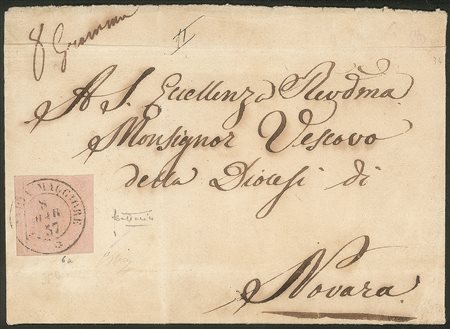 8 Grammi
A S. Eccellenza Revdma.
Monsignor Vescovo
della Diocesi di
MAGGIORE
8
MAR
57
3
6a
Novara